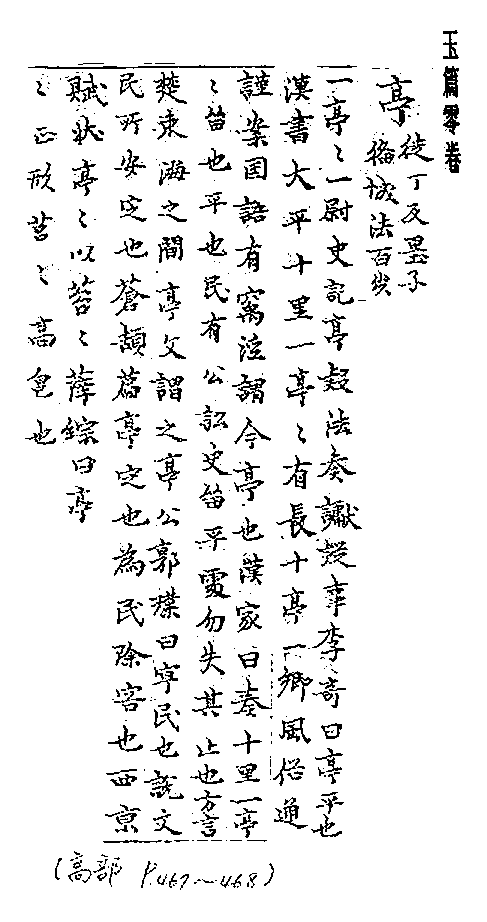 玉篇零卷
亭
徒丁反墨子
俻城法百步
一亭〻一尉史記亭疑法奏讞疑事李奇曰亭平也
漢書大平十里一亭〻有長十亭一鄉風俗通
謹案国語有寓泣謂今亭也漢家曰秦十里一亭
〻留也平也民有公訟吏留平處勿失其止也方言
楚東海之間亭父謂之亭公郭璞曰亭民也說文
民所安定也蒼頡篇亭定也為民除害也西京
賦狀亭〻以苕〻薛綜曰亭
〻正形苕〻高皃也
(高部 P.467~468)